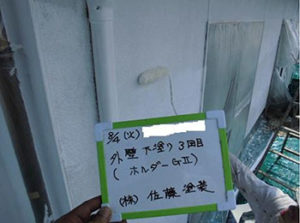 8/4(火)
外壁 下塗り 3回目
( ホルダーGⅡ)
(株) 佐藤塗装